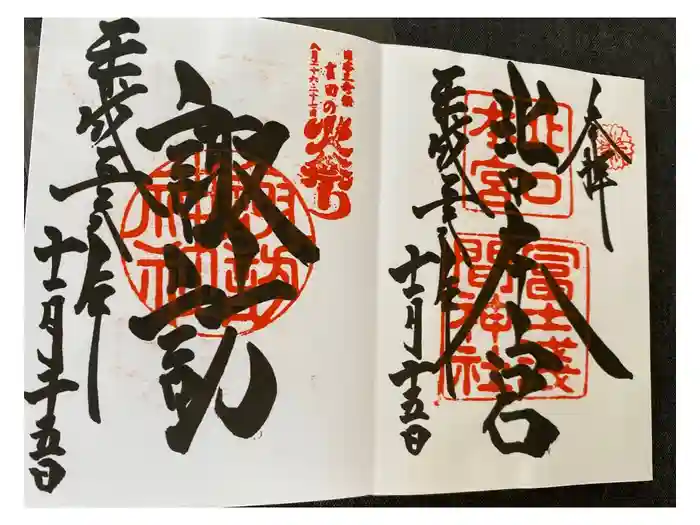 奉拝
北口本宮
北口
本宮
冨士浅
間神社
平成
月十五日
日本三奇祭
吉田の
火祭り
八月二十六・二十七日
諏訪
諏訪
神社
平成
月十五日